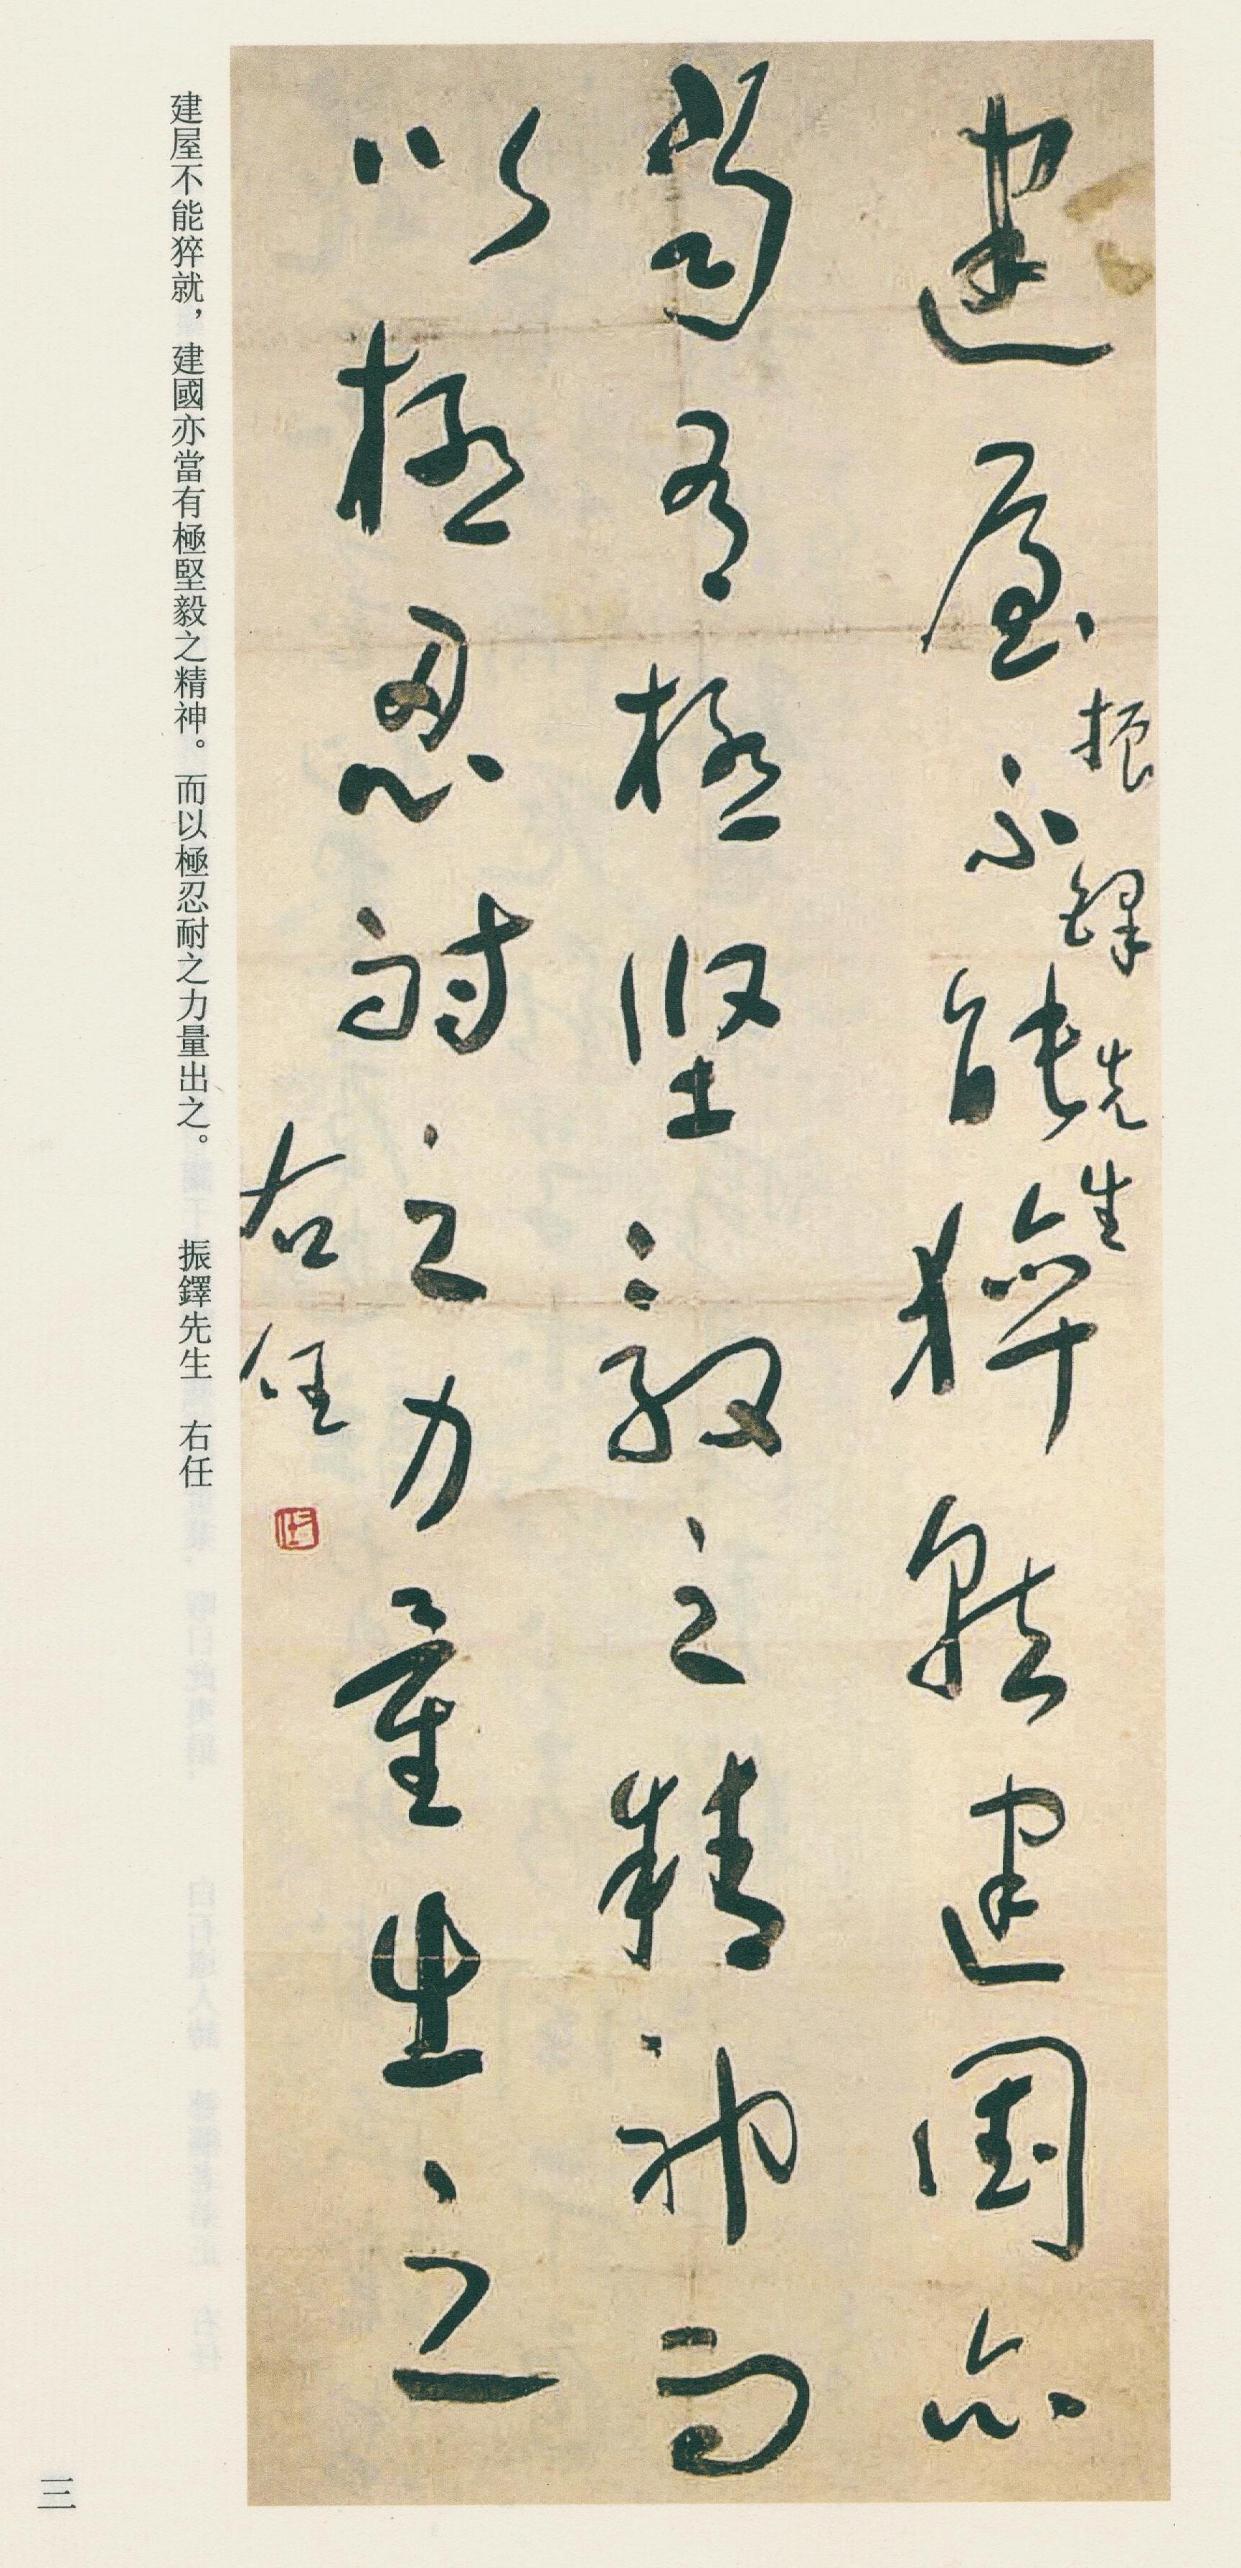 建屋不能猝就建國亦
當有極堅毅之精神而
以極忍耐之力量出之
振鐸先生
右任
建屋不能猝就，建國亦當有極堅毅之精神。而以極忍耐之力量出之。 振鐸先生 右任
三